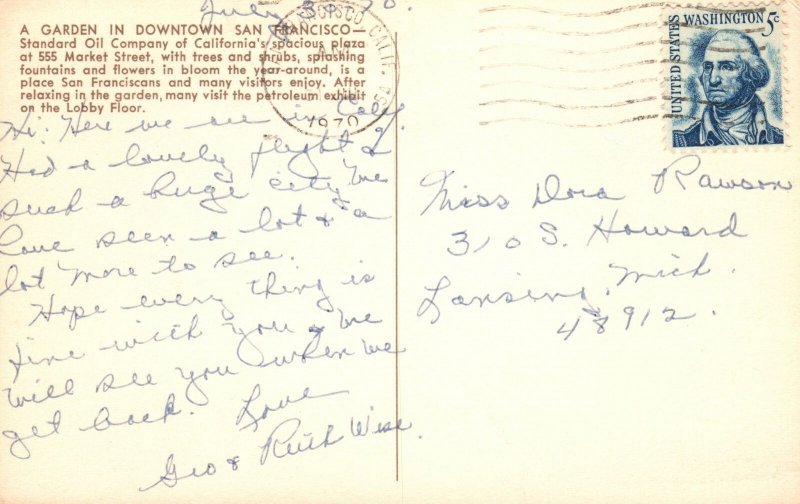 July 30, 70.
A GARDEN IN DOWNTOWN SAN FRANCISCO—
Standard Oil Company of California's spacious plaza
at 555 Market Street, with trees and shrubs, splashing
fountains and flowers in bloom the year-around, is a
place San Franciscans and many visitors enjoy. After
relaxing in the garden, many visit the petroleum exhibit
on the Lobby Floor.
Hi: Here we are in Calif.
Had a lovely flight &
such a huge city. We
have seen a lot & a
lot more to see.
Hope every thing is
fine with you & we
will see you when we
get back. Love
Geo & Ruth Wise.
FRANCISCO CALIF.
1970
UNITED STATES
WASHINGTON 5c
Miss Dora Rawson
310 S. Howard
Lansing, Mich.
48912.